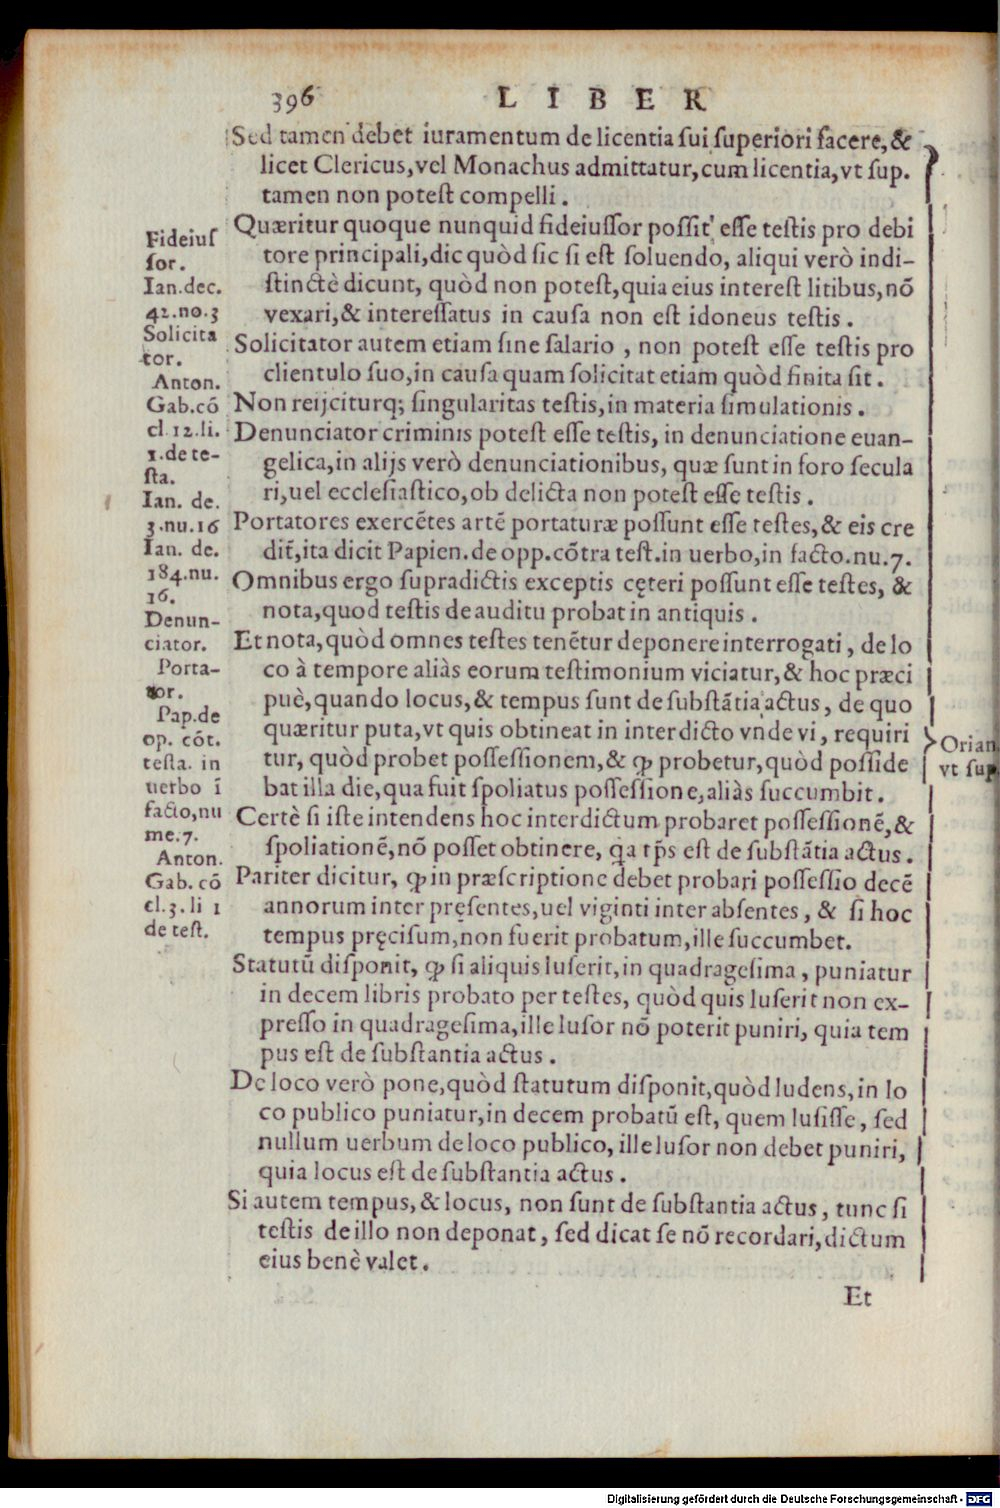 396 LIBER
Sed tamen debet iuramentum de licentia sui superiori facere, &
licet Clericus, vel Monachus admittatur, cum licentia, vt sup.
tamen non potest compelli.
Quæritur quoque nunquid fideiussor possit esse testis pro debi
tore principali, dic quòd sic si est soluendo, aliqui verò indi-
stinctè dicunt, quòd non potest, quia eius interest litibus, nō
vexari, & interessatus in causa non est idoneus testis.
Solicitator autem etiam sine salario, non potest esse testis pro
clientulo suo, in causa quam solicitat etiam quòd finita sit.
Non reijciturq; singularitas testis, in materia simulationis.
Denunciator criminis potest esse testis, in denunciatione euan-
gelica, in alijs verò denunciationibus, quæ sunt in foro secula
ri, uel ecclesiastico, ob delicta non potest esse testis.
Portatores exercētes artē portaturæ possunt esse testes, & eis cre
dit̃, ita dicit Papien. de opp. cōtra test. in uerbo, in facto. nu. 7.
Omnibus ergo supradictis exceptis cęteri possunt esse testes, &
nota, quod testis de auditu probat in antiquis.
Et nota, quòd omnes testes tenētur deponere interrogati, de lo
co à tempore aliàs eorum testimonium viciatur, & hoc præci
puè, quando locus, & tempus sunt de substātia actus, de quo
quæritur puta, vt quis obtineat in interdicto vnde vi, requiri
tur, quòd probet possessionem, & ꝙ probetur, quòd posside
bat illa die, qua fuit spoliatus possessione, aliàs succumbit.
Certè si iste intendens hoc interdictum probaret possessionē, &
spoliationē, nō posset obtinere, q̃a tp̃s est de substātia actus.
Pariter dicitur, ꝙ in præscriptione debet probari possessio decē
annorum inter pręsentes, uel viginti inter absentes, & si hoc
tempus pręcisum, non fuerit probatum, ille succumbet.
Statutū disponit, ꝙ si aliquis luserit, in quadragesima, puniatur
in decem libris probato per testes, quòd quis luserit non ex-
presso in quadragesima, ille lusor nō poterit puniri, quia tem
pus est de substantia actus.
De loco verò pone, quòd statutum disponit, quòd ludens, in lo
co publico puniatur, in decem probatū est, quem lusisse, sed
nullum uerbum de loco publico, ille lusor non debet puniri,
quia locus est de substantia actus.
Si autem tempus, & locus, non sunt de substantia actus, tunc si
testis de illo non deponat, sed dicat se nō recordari, dictum
eius benè valet.
Et
Fideius
sor.
Ian. dec.
42. no. 3
Solicita
tor.
Anton.
Gab. cō
cl. 12. li.
1. de te-
sta.
Ian. de.
3. nu. 16
Ian. de.
184. nu.
16.
Denun-
ciator.
Porta-
tor.
Pap. de
op. cōt.
testa. in
uerbo ī
facto, nu
me. 7.
Anton.
Gab. cō
cl. 3. li 1
de test.
Orian.
vt sup.
Digitalisierung gefördert durch die Deutsche Forschungsgemeinschaft - DFG